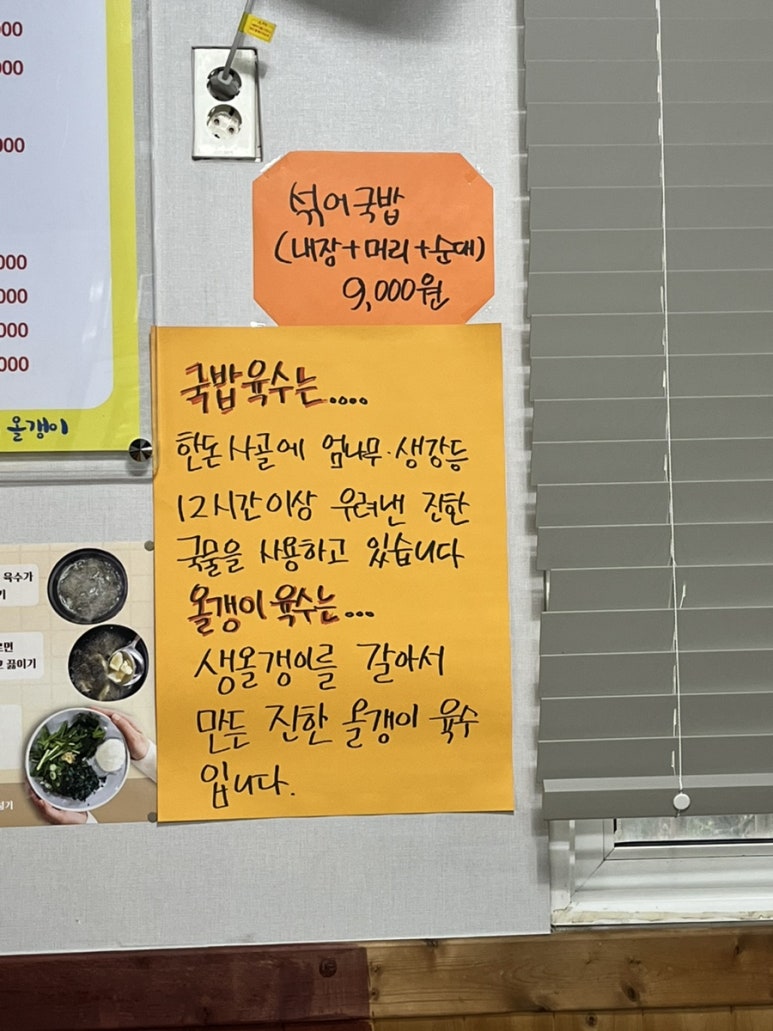 000
000
000
000
000
000
000
올갱이
섞어국밥
(내장+머리+순대)
9,000원
국밥육수는....
한돈사골에 엄나무·생강등
12시간이상 우려낸 진한
국물을 사용하고 있습니다
올갱이육수는...
생올갱이를 갈아서
만든 진한 올갱이 육수
입니다.
육수가
기
끓이기